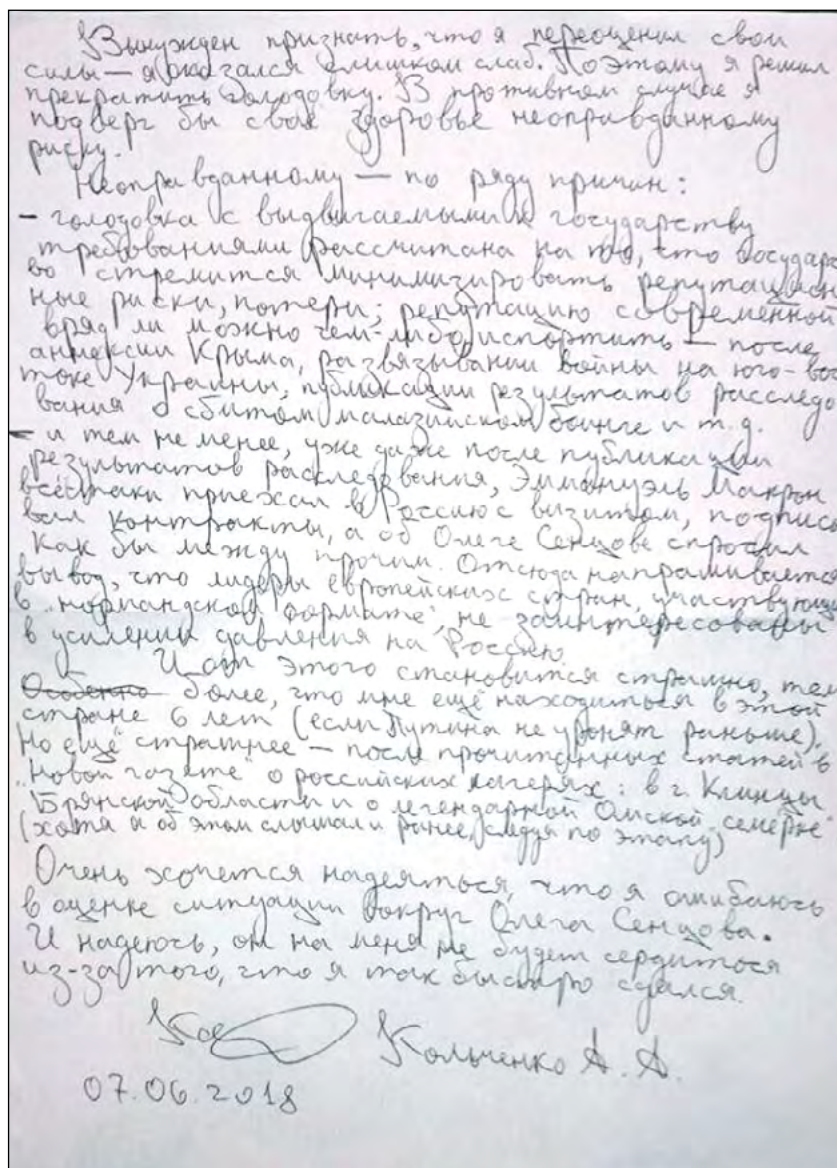 Вынужден признать, что я переоценил свои
силы — я оказался слишком слаб. Поэтому я решил
прекратить голодовку. В противном случае я
подверг бы своё здоровье неоправданному
риску.
Неоправданному — по ряду причин:
- голодовка с выдвигаемыми к государству
требованиями рассчитана на то, что государс
во стремится минимизировать репутацион
ные риски, потери; репутацию современной
вряд ли можно чем-либо испортить — после
аннексии Крыма, развязывании войны на юго-вос
токе Украины, публикации результатов расследо
вания о сбитом малазийском боинге и т.д.
- и тем не менее, уже даже после публикации
результатов расследования, Эммануэль Макрон
всё-таки приехал в Россию с визитом, подписы
вал контракты, а об Олеге Сенцове спросил
как бы между прочим. Отсюда напрашивается
вывод, что лидеры европейских стран, участвующих
в "нормандском формате", не заинтересованы
в усилении давления на Россию
И от этого становится страшно, тем
Особенно более, что мне ещё находиться в этой
стране 6 лет (если Путина не уронят раньше).
Но ещё страшнее — после прочитанных статей в
"Новой газете" о российских лагерях: в г. Клинцы
Брянской области и о легендарной Омской "семёрке"
(хотя и об этом слышал и ранее, следуя по этапу)
Очень хочется надеяться, что я ошибаюсь
в оценке ситуации вокруг Олега Сенцова.
И надеюсь, он на меня не будет сердиться
из-за того, что я так быстро сдался.
Кольченко А. А.
07.06.2018